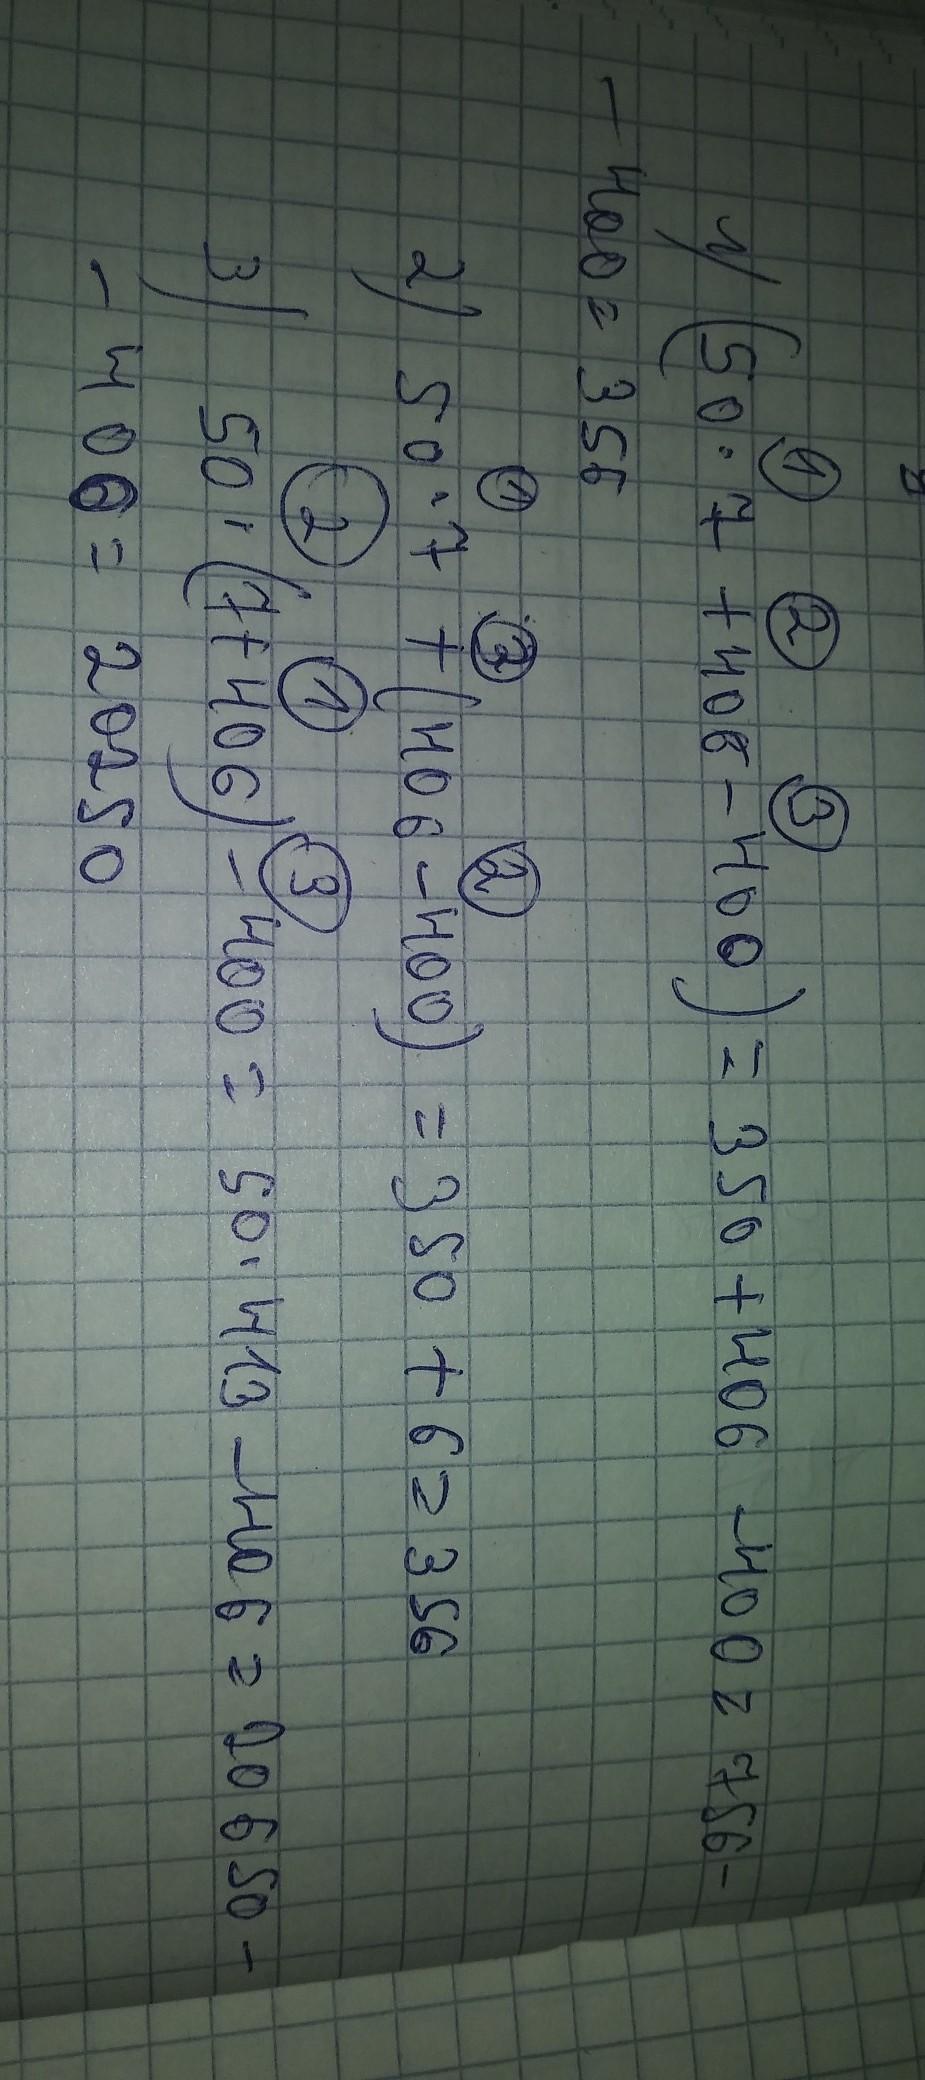 ① ② ③
1) (50·7+406-400) = 350+406-400=756-
-400=356
① ③ ②
2) 50·7+(406-400) = 350+6=356
② ① ③
3) 50·(7+406)-400= 50·413-406=20650-
-406= 20250